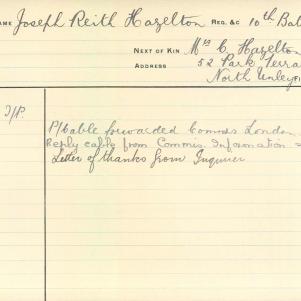 AME Joseph Reith Hazelton REG. &C 10th Bat
NEXT OF KIN Mrs C Hazelton
ADDRESS 52 Park Terra
North Unley
I/P.
P/Cable forwarded Commrs London
Reply cable from Commrs. Information
Letter of thanks from Inquirer